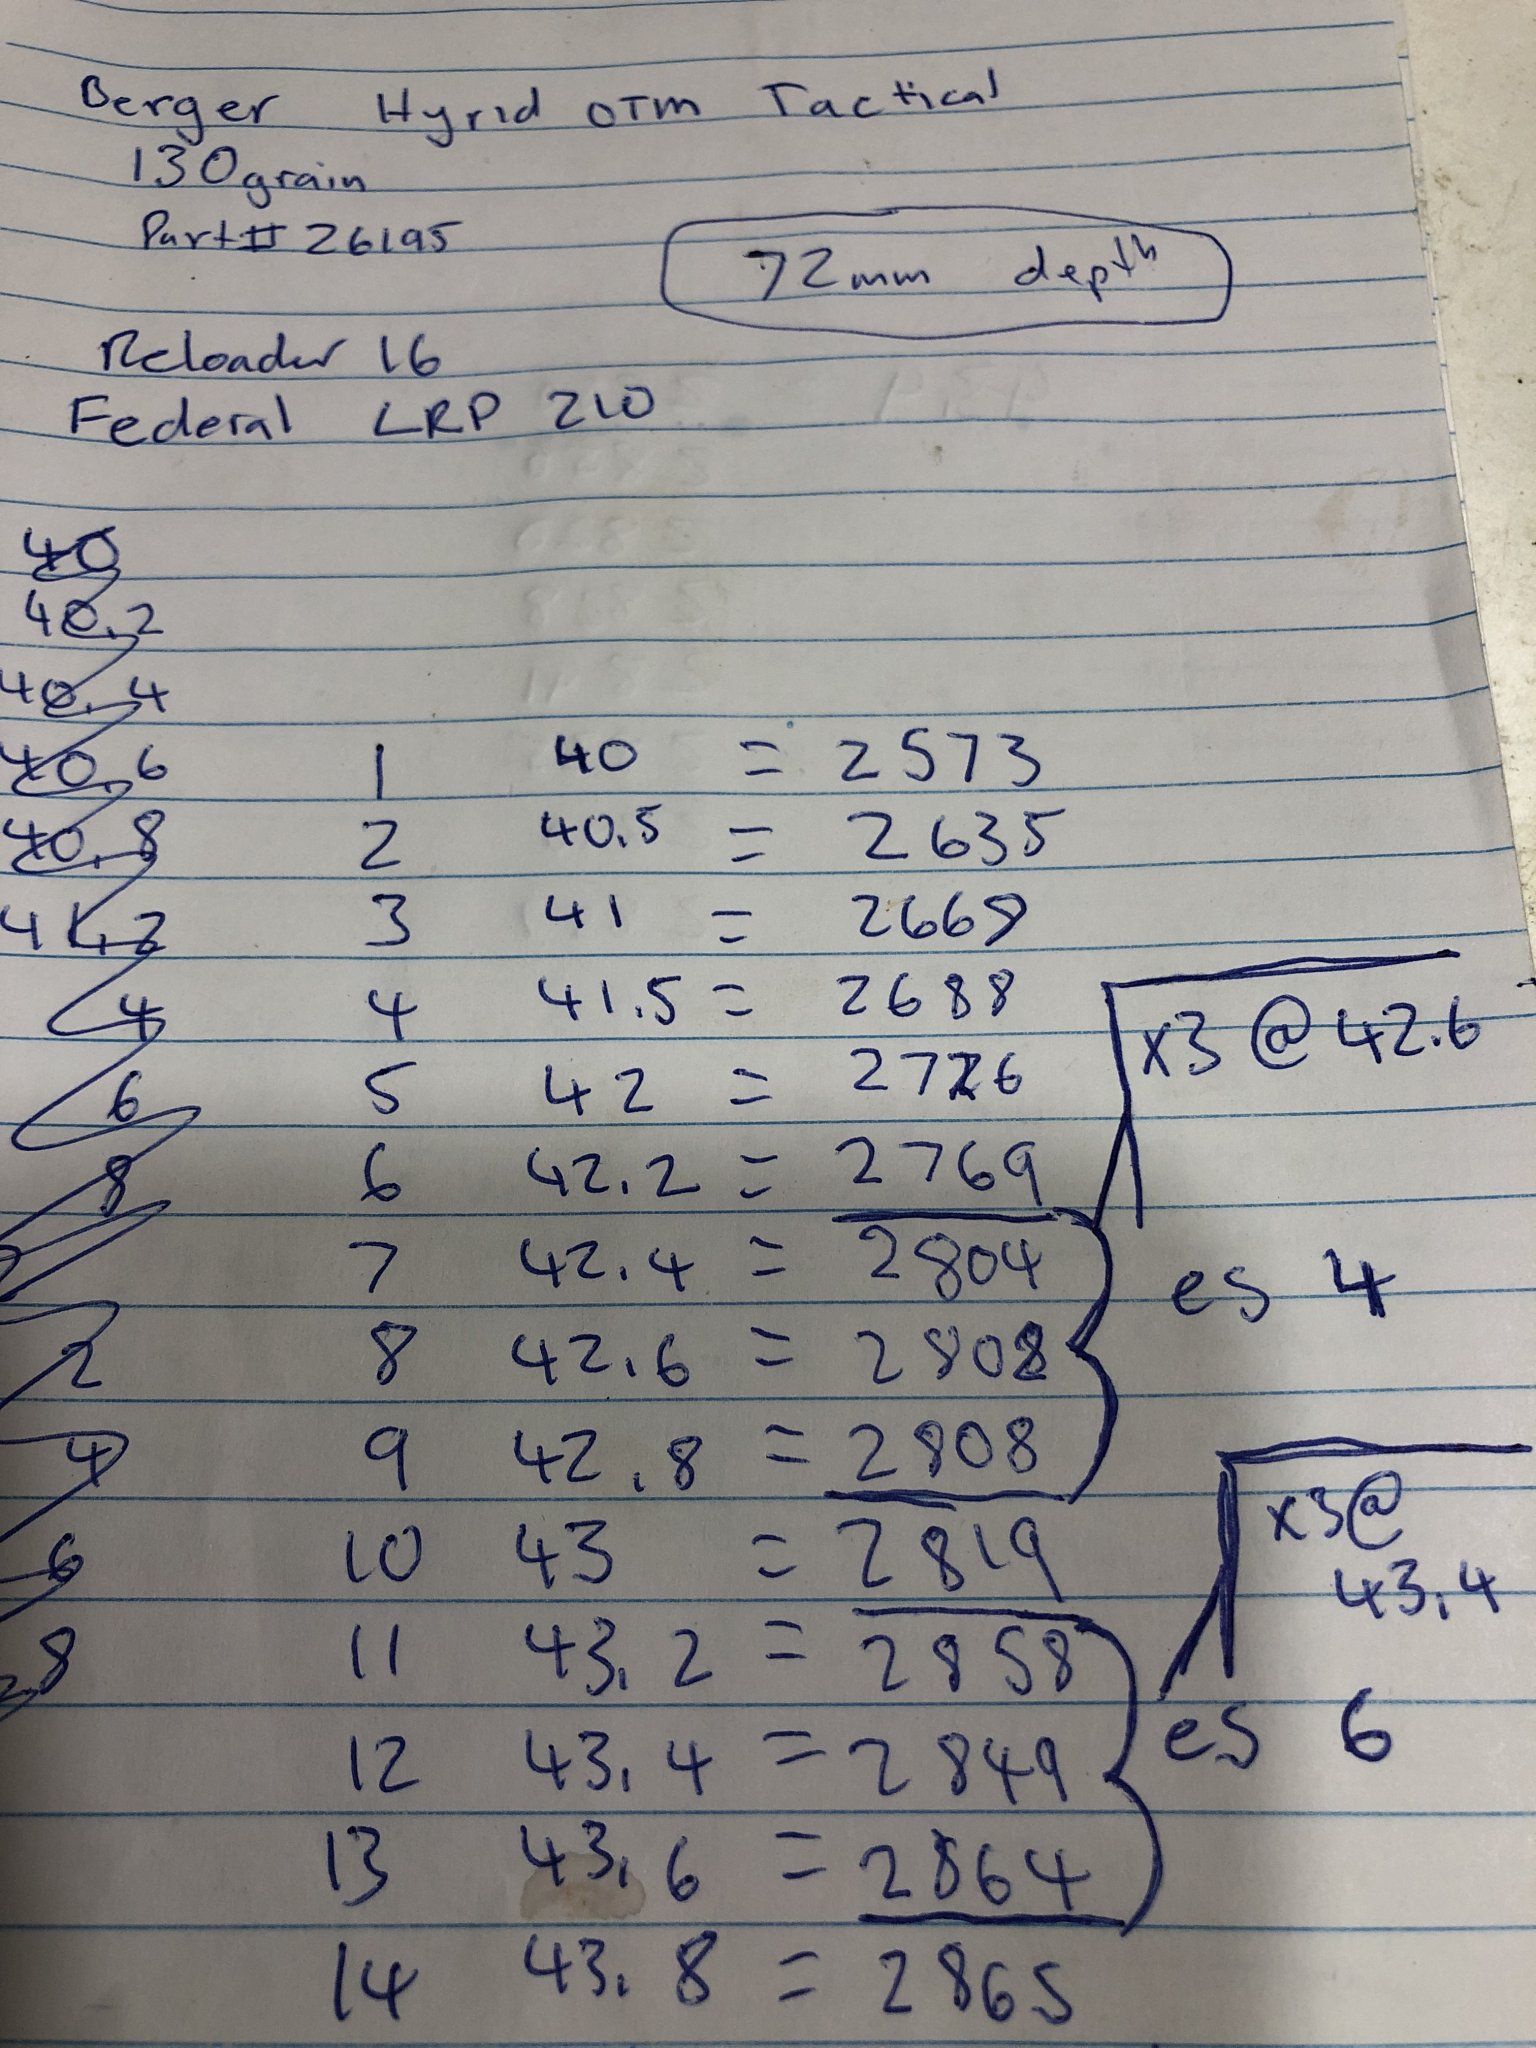 Berger Hyrid OTM Tactical
130grain
Part# 26195
72mm depth
Reloader 16
Federal LRP 210
40
40.2
40.4
40.6
40.8
4
6
8
2
4
6
8
1 40 = 2573
2 40.5 = 2635
3 41 = 2669
4 41.5 = 2688
5 42 = 2726
6 42.2 = 2769
7 42.4 = 2804
8 42.6 = 2808
9 42.8 = 2808
x3 @ 42.6
es 4
10 43 = 2819
11 43.2 = 2858
12 43.4 = 2849
13 43.6 = 2864
x3@
43.4
es 6
14 43.8 = 2865